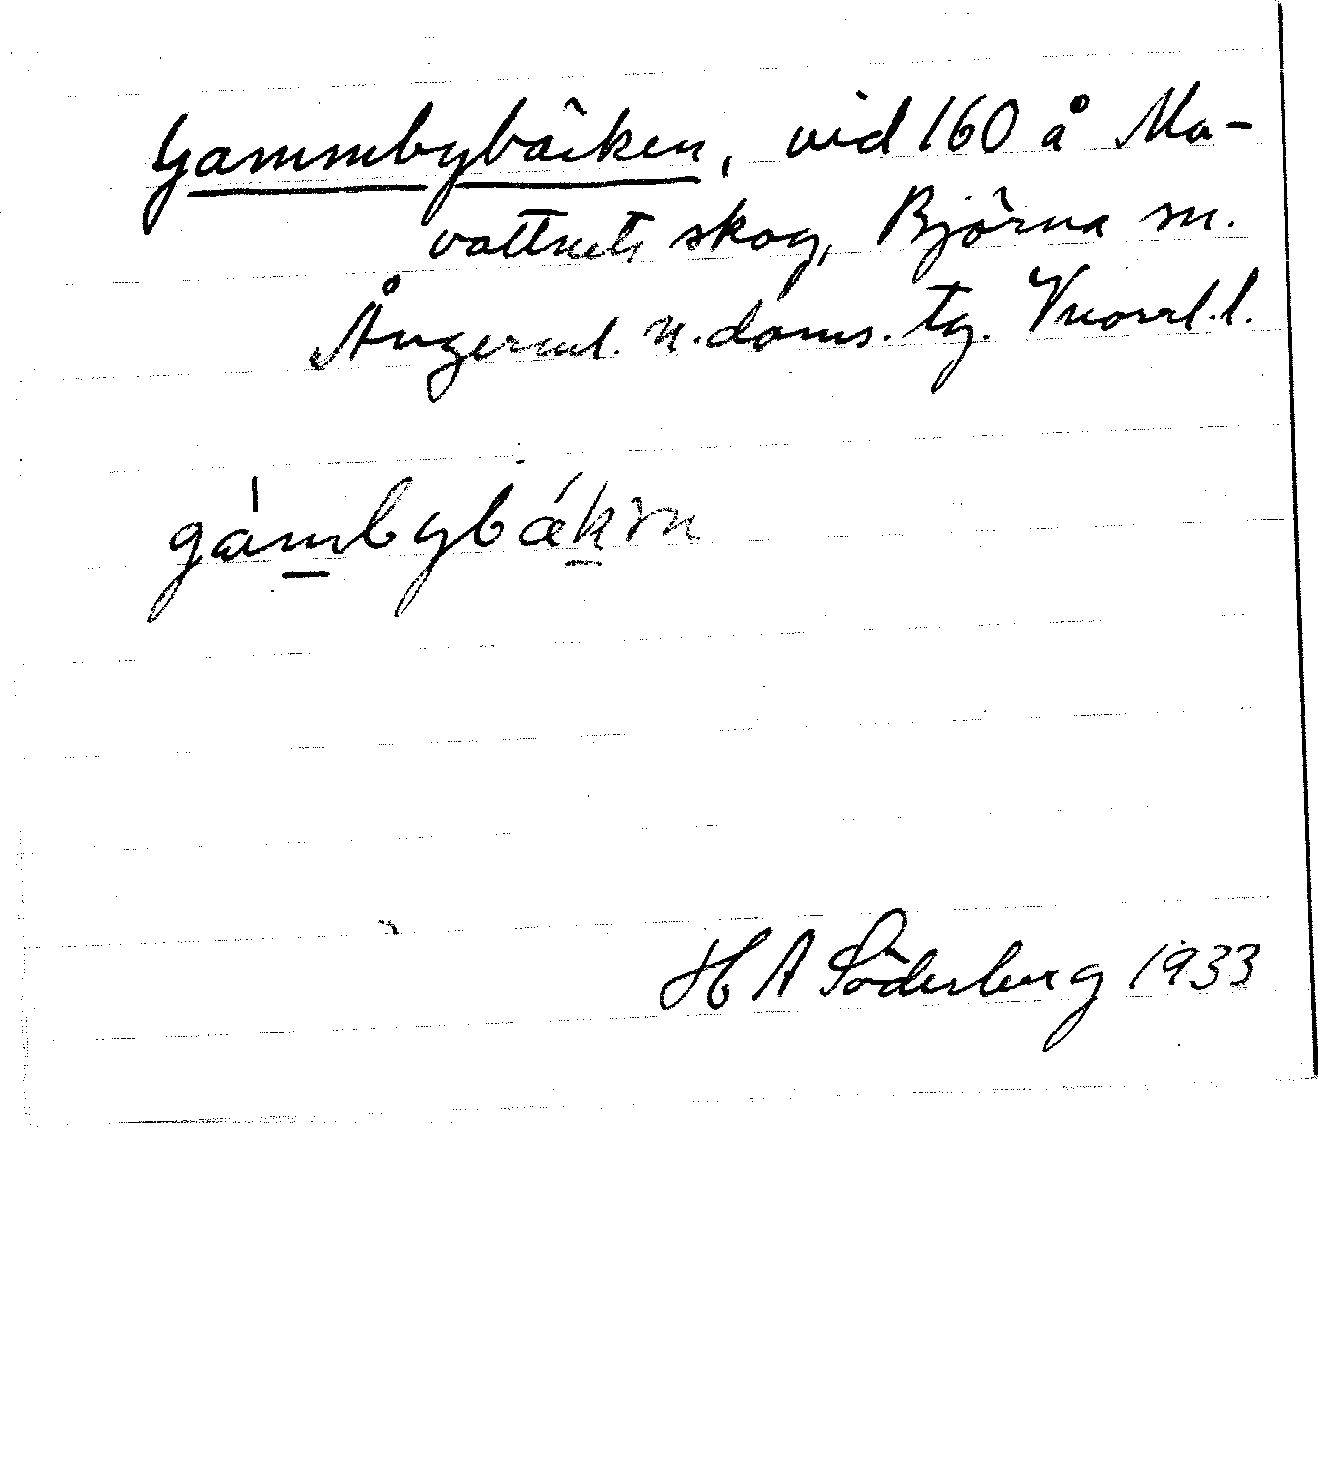 Gammbybäcken, vid 160 å Ma-
vattnets skog, Björna sn.
Ångerml. n. doms. tg. Vnorrl. l.
gámbybækɪn
H A Söderberg 1933